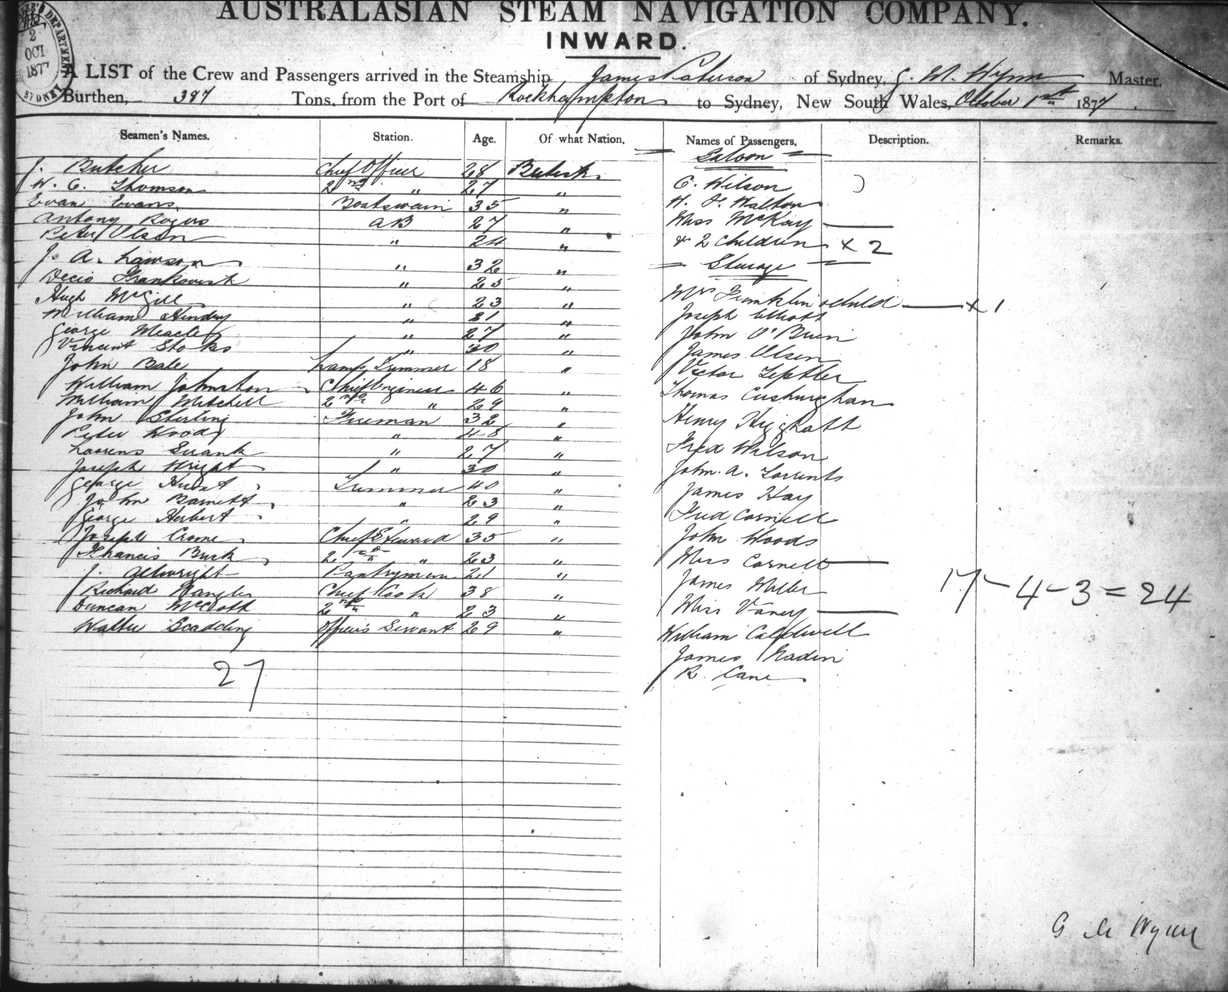 AUSTRALASIAN STEAM NAVIGATION COMPANY.
INWARD.
2
OCT
1877
SYDNEY
A LIST of the Crew and Passengers arrived in the Steamship James Paterson of Sydney, Master.
Burthen, 387 Tons, from the Port of Rockhampton to Sydney, New South Wales, October 1st 1877
Seamen's Names. Station. Age. Of what Nation.
J. Butcher Chief Officer 28 British
W. C. Thomson 2nd " 27 "
Evan Evans Boatswain 35 "
Antony Rogers AB 27 "
Peter Olsen " 24 "
J. A. Lawson " 32 "
Decio " 25 "
Hugh McGill " 23 "
William Hendry " 21 "
George " 27 "
Vincent Stoks " 30 "
John Bale Lamp Trimmer 18 "
William Johnston Chief Engineer 46 "
William Mitchell 2nd " 29 "
John Sterling Fireman 32 "
Peter Woods " 48 "
Swank " 27 "
Joseph Wright " 30 "
George Hurst Trimmer 40 "
John Barnett " 23 "
George Herbert " 29 "
Joseph Crome Chief Steward 35 "
Francis Burk 2nd " 23 "
J. Allwright Pantryman 21 "
Richard Chief Cook 38 "
Duncan 2nd " 23 "
Walter Scadding Officers Servant 29 "
27
Names of Passengers. Description. Remarks.
Saloon
C. Wilson
H. F. Walton
Miss McKay
& 2 Children x 2
Steerage
Mrs Franklin & child x 1
Joseph Elliott
John O'Brien
James Olsen
Victor
Thomas
Henry
Fred Watson
John A. Torrents
James Hay
Fred Cornell
John Woods
Miss Cornell
James Miller
Miss
William Caldwell
James
R. Cane
17 - 4 - 3 = 24